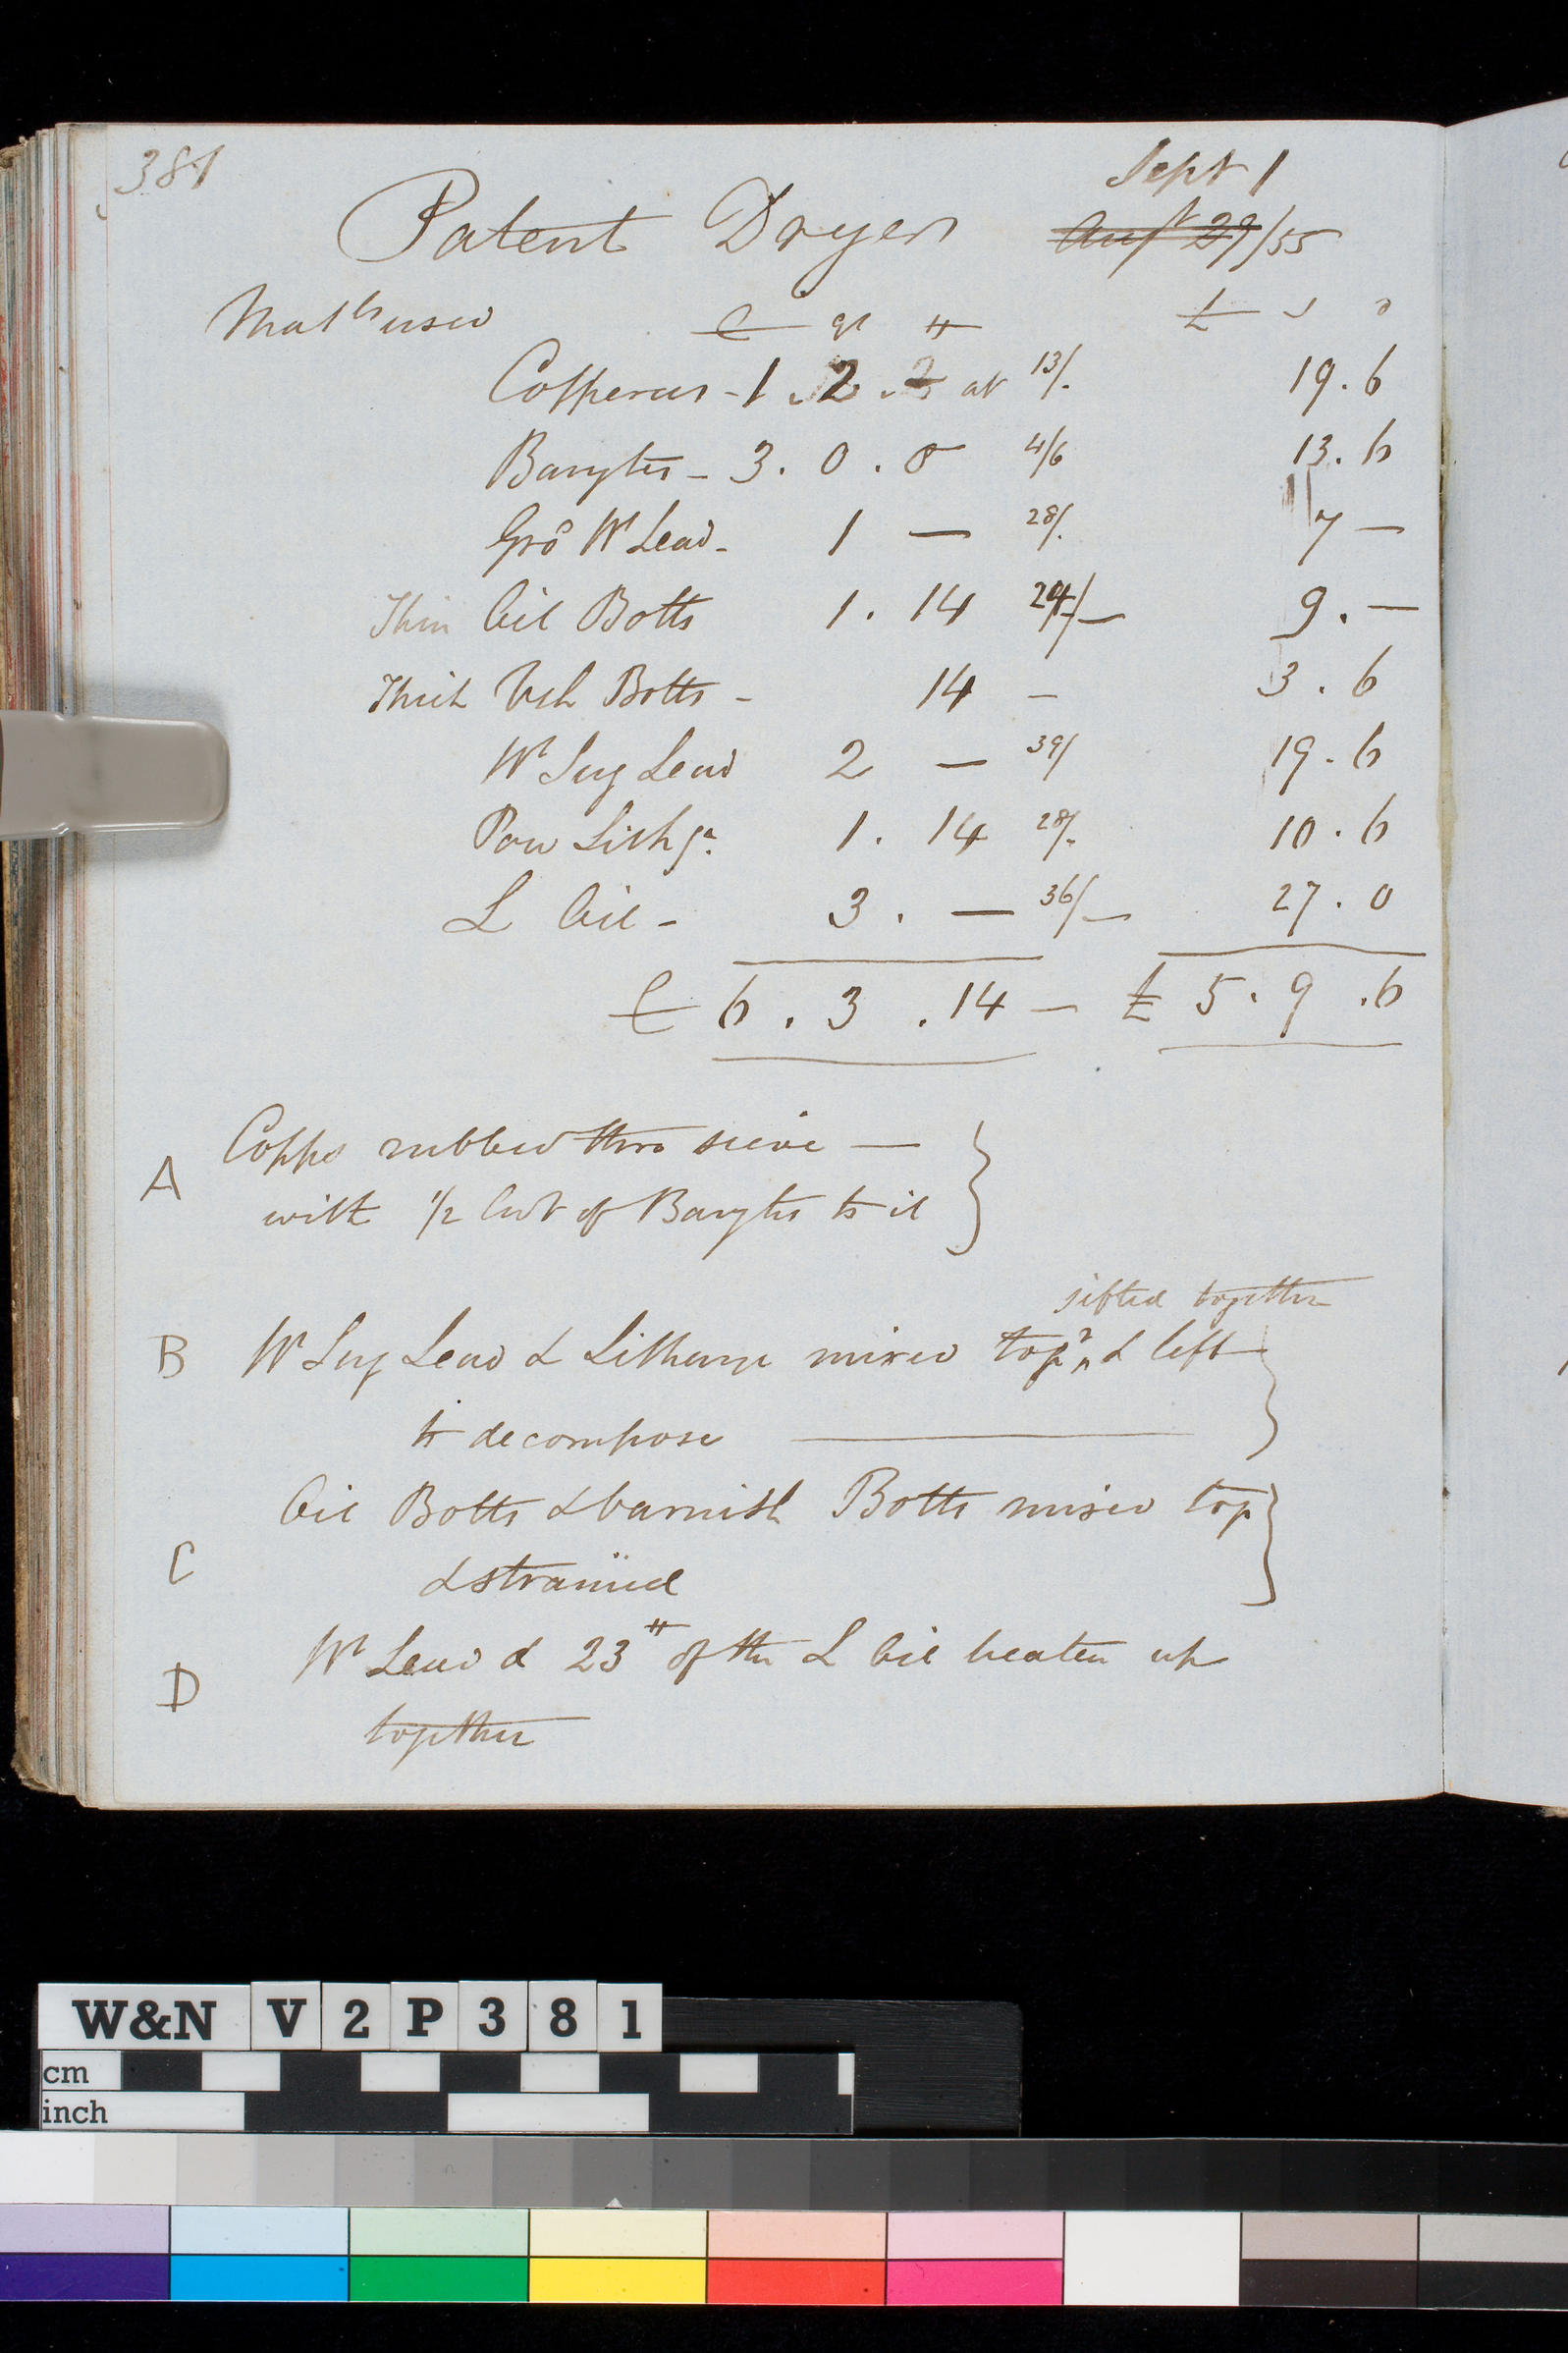 381
Sept 1
Patent Dryer Augt 29/55
Matls used C qr # £ s d
Copperas - 1 . 2 . at 13/. 19.6
Barytes - 3 . 0 . 0 4/6 13.6
Gro W Lead - 1 — 28/. 7 —
Thin Oil Botts 1 . 14 24/— 9 . —
Thick Vsh Botts - 14 — 3 . 6
W Sug Lead 2 — 39/ 19.6
Pow Lithge. 1 . 14 28/. 10.6
L Oil - 3 . — 36/— 27.0
C 6 . 3 . 14 — £ 5 . 9 . 6
Copps rubbed thro sieve —
A
with 1/2 Cwt of Barytes to it
sifted together
B W Sug Lead & Litharge mixed togr & left
to decompose
Oil Botts & varnish Botts mixed tog
C
& strained
W Lead & 23 # of the L Oil beaten up
D
together
W&N V 2 P 3 8 1
cm
inch